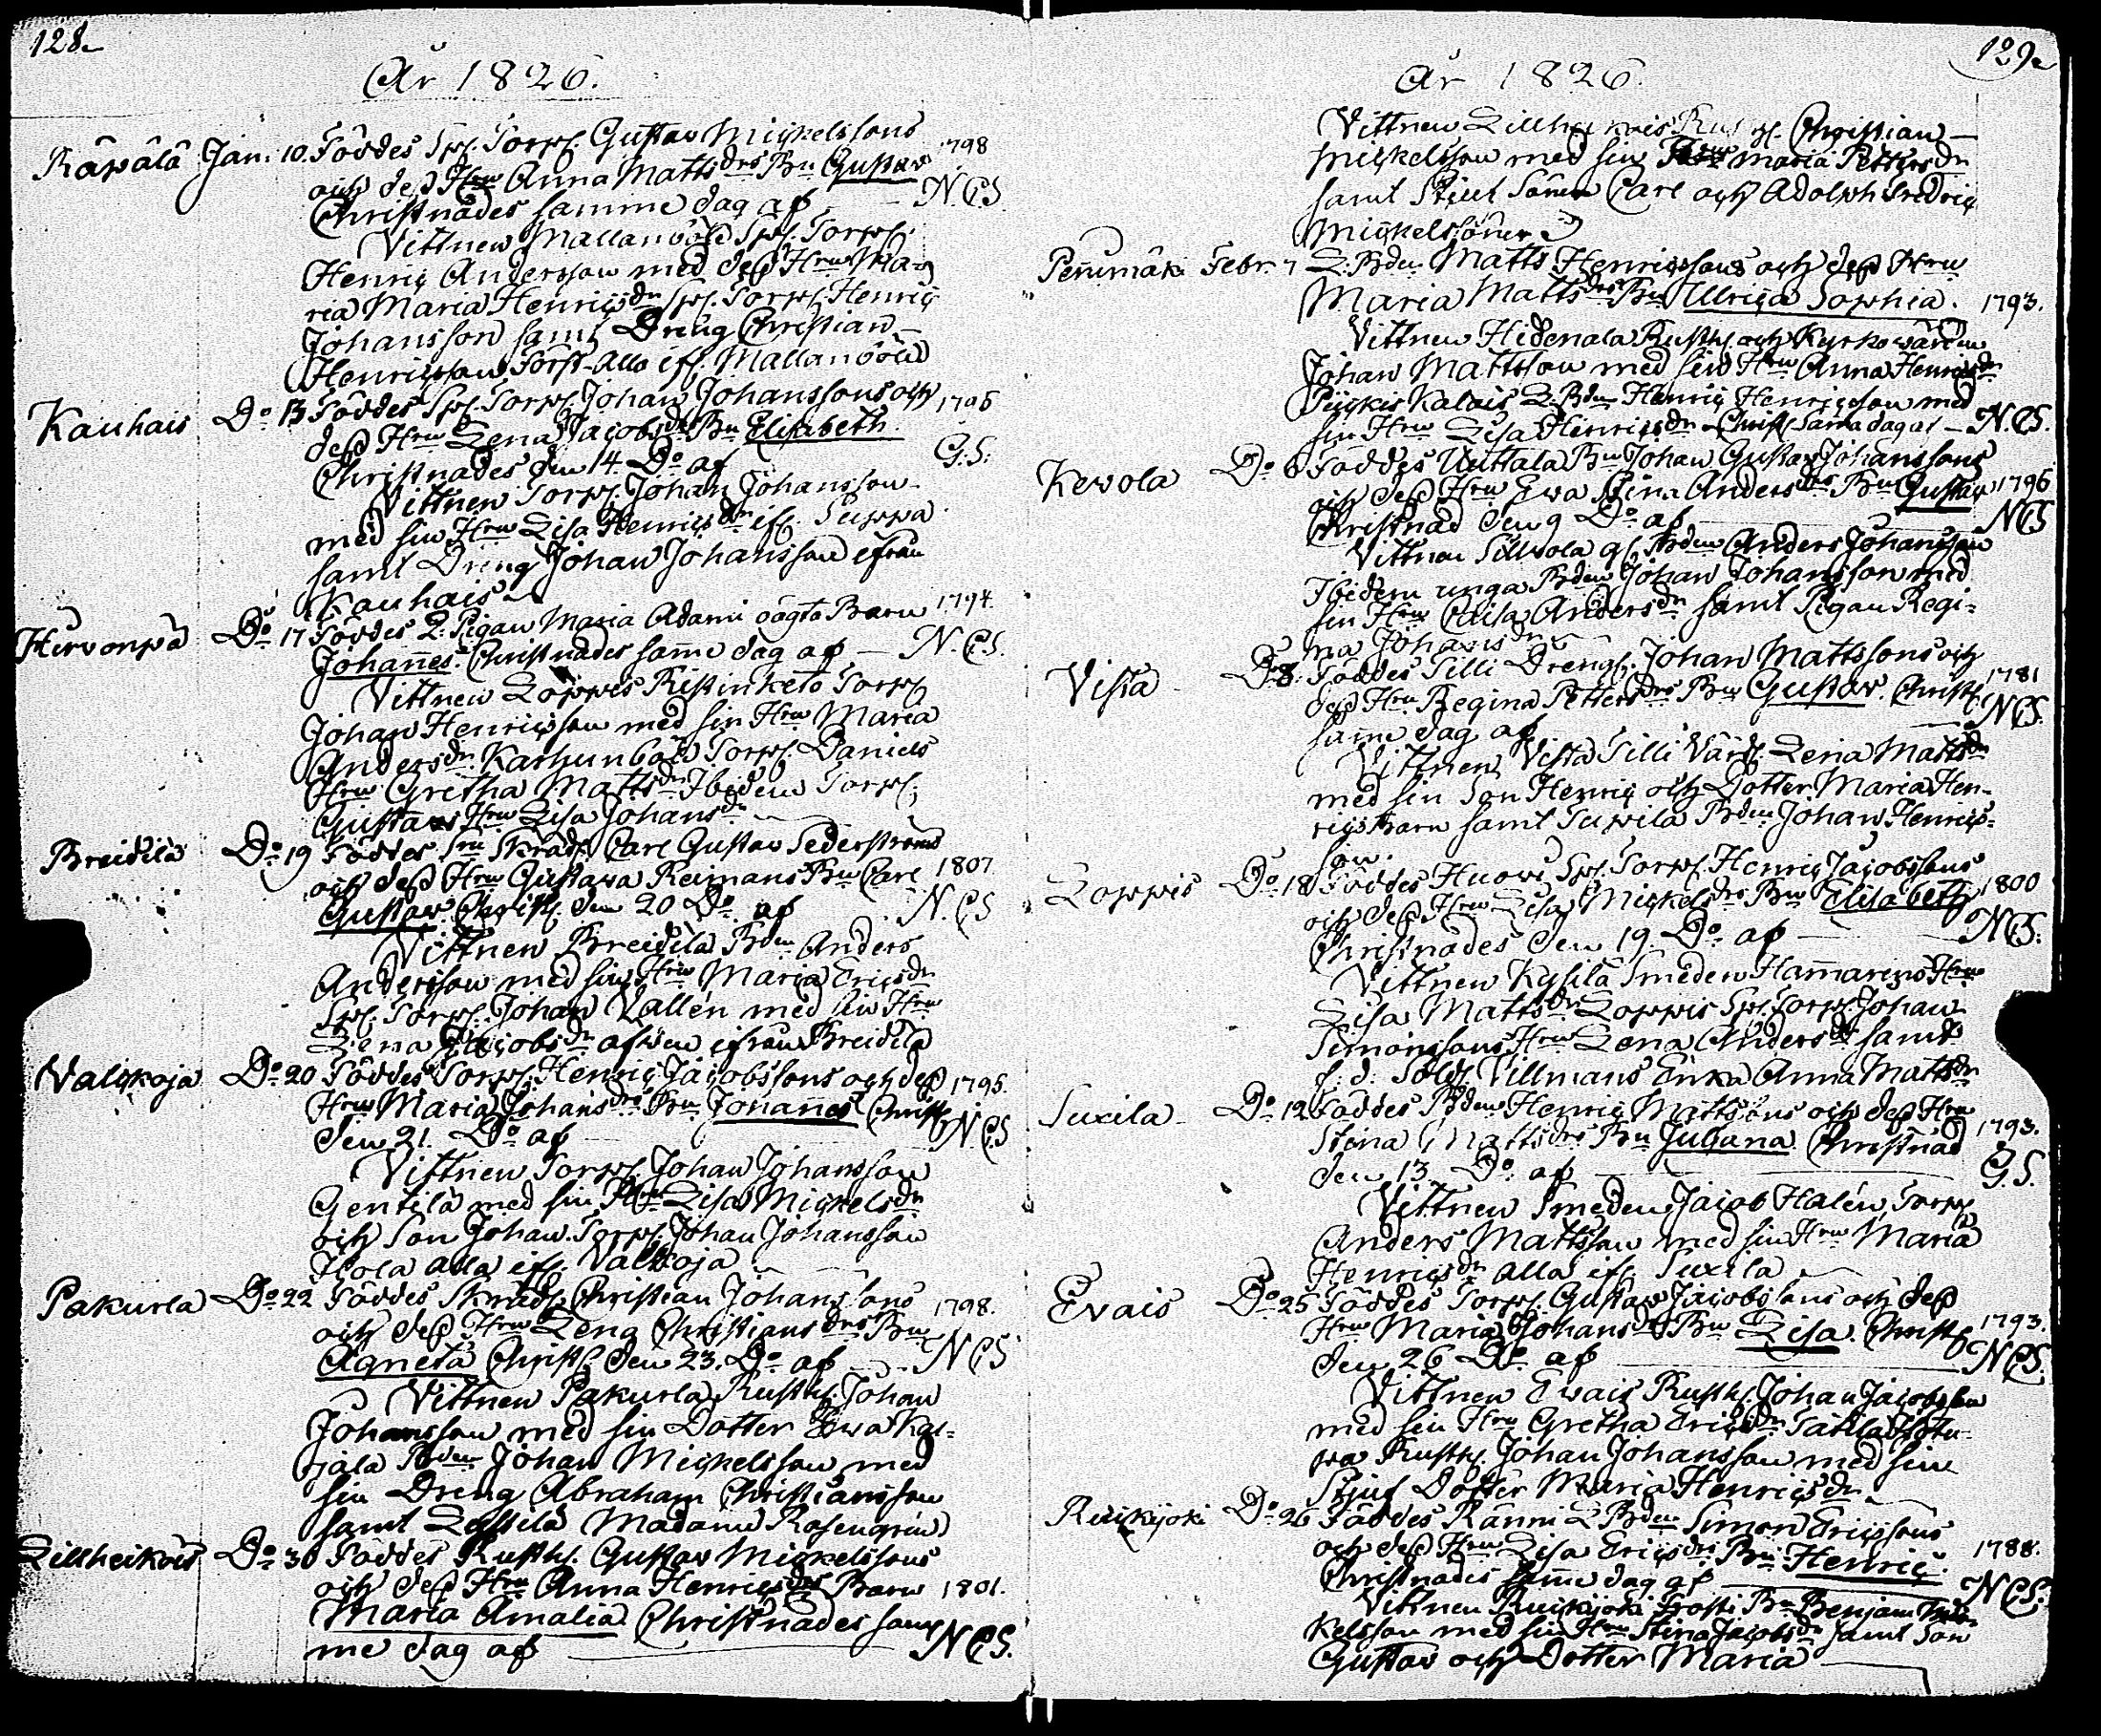 128.
År 1826.
Räpälä Jan. 10. Föddes Spl. Torpl. Gustav Mickelssons
och dess Hru Anna Mattsdrs Bn Gustav 1798
Christnades samme dag af — N.C.S.
Vittnen Mallanböle Spl. Torpl.
Henric Andersson med dess Hru Ma-
ria Maria Henricsdn Spl. Torpl. Henric
Johansson samt Dreng Christian
Henricsson Torst. alla ifl. Mallanböle
Kauhais Do 13 Föddes Spl. Torpl. Johan Johanssons och 1795
dess Hru Lena Jacobsdrs Bn Elisabeth.
Christnades den 14 Do af G.S.
Vittnen Torpl. Johan Johansson
med sin Hru Lisa Henricsdn ifl. Suppa
samt Dreng Johan Johansson ifrån
Kauhais
Hirvonpä Do 17 Föddes L. Pigan Maria Adami oägta Barn 1794.
Johannes. Christnades samme dag af — N.C.S.
Vittnen Loppis Ristinketo Torpl
Johan Henricsson med sin Hru Maria
Andersdn Karhunböle Torpl. Daniels
Hru Gretha Mattsdn Ibidem Torpl.
Gustavs Hru Lisa Johansdn
Breidilä Do 19 Föddes Srn Skrädd. Carl Gustav Sederströms
och dess Hru Gustava Reimans Bn Carl 1807.
Gustav. Christl. den 20 Do af N.C.S
Vittnen Breidilä Bden Anders
Andersson med sin Hru Maria Ericsdn
Spl. Torpl. Johan Vallén med sin Hru
Lena Jacobsdn afven ifrån Breidilä
Valckoja Do 20 Föddes Torpl. Henric Jacobssons och dess 1795.
Hru Maria Johansdrs Bn Johannes Christl.
den 21. Do af N.C.S
Vittnen Torpl. Johan Johansson
Gentilä med sin Hru Lisa Mickelsdn
och Son Johan. Torpl. Johan Johansson
alla ifl. Valkoja
Pakurla Do 22 Föddes Skrädd. Christian Johanssons 1798.
och dess Hru Lena Christiansdrs Bn
Agneta Christl. den 23. Do af — N.C.S
Vittnen Pakurla Rusthl. Johan
Johansson med sin Dotter Ewa Kar-
jala Bden Johan Mickelsson med
sin Dreng Abraham Christiansson
samt Lassila Madame Rosengrén
Lillheikois Do 30 Föddes Rusthl. Gustav Mickelssons
och dess Hru Anna Henricsdrs Barn 1801.
Maria Amalia Christnades sam-
me dag af N.C.S.
129.
År 1826.
Vittnen Lillheikois Christian
Mickelsson med sin Maria Pettersdn
samt Stjuf Söner Carl och Adolph Fredric
Mickelssöner
Penimäki Febr. 7 L. Bden Matts Henricssons och dess Hru
Maria Mattsdrs Bn Ulrica Sophia. 1793.
Vittnen Hidenala Rusthl. och Kyrkovärden
Johan Mattsson med sin Hru Anna Henricsdn
Pijckis Kalais L. Bden Henric Henricsson med
sin Hru Lisa Henricsdn Christl. Sama dag af — N.C.S.
Kevola Do 8 Föddes Uuttala Bn Johan Gustav Johanssons
och dess Hru Ewa Stina Andersdrs Bn Gustav 1796
Christnad den 9 Do af N.C.S
Vittnen Sillvola gl. Bden Anders Johansson
Ibidem unga Bden Johan Johansson med
sin Hru Caisa Andersdn samt Pigan Regi-
na Johansdn
Vista Do 8 Föddes Tilli Drengl. Johan Mattssons och
dess Hru Regina Pettersdrs Bn Gustav. Christl. 1781
same dag af N.C.S.
Vittnen Vista Tilli Värd. Lena Mattsdn
med sin Son Henric och Dotter Maria Hen-
rics Barn samt Supila Bden Johan Henrics-
son.
Loppis Do 18 Föddes Huovi Spl. Torpl. Henric Jacobssons
och dess Hru Lisa Mickelsdrs Bn Elisabeth 1800
Christnades den 19. Do af — N.C.S.
Vittnen Kysilä Smeden Hammarens Hru
Lisa Mattsdn Loppis Spl. Torpl. Johan
Simonssons Hru Lena Andersdn samt
f. d. Sold. Villmans Enka Anna Mattsdn
Suxila Do 12 Föddes Bden Henric Mattssons och dess Hru
Stina Mattsdrs Bn Juliana Christnad 1793.
den 13. Do af — G.S.
Vittnen Smeden Jacob Halén, Torpl
Anders Mattsson med sin Hru Maria
Henricsdn alla ifl. Suxila
Evais Do 25 Föddes Torpl. Gustav Jacobssons och dess
Hru Maria Johansdrs Bn Lisa. Christl. 1793.
den 26 Do af N.C.S.
Vittnen Evais Rusthl. Johan Jacobsson
med sin Hru Gretha Ericsdn
Rusthl. Johan Johansson med sin
Stjuf Dotter Maria Henricsdn
Ruikijoki Do 26 Föddes Ränni L Bden Simon Ericssons
och dess Hru Lisa Ericsdrs Bn Henric. 1788.
Christnades same dag af N.C.S.
Vittnen Ruikijoki Frosti Bn Benjam Mic-
kelsson med sin Hru Stina Jacobsdn samt Son
Gustav och Dotter Maria